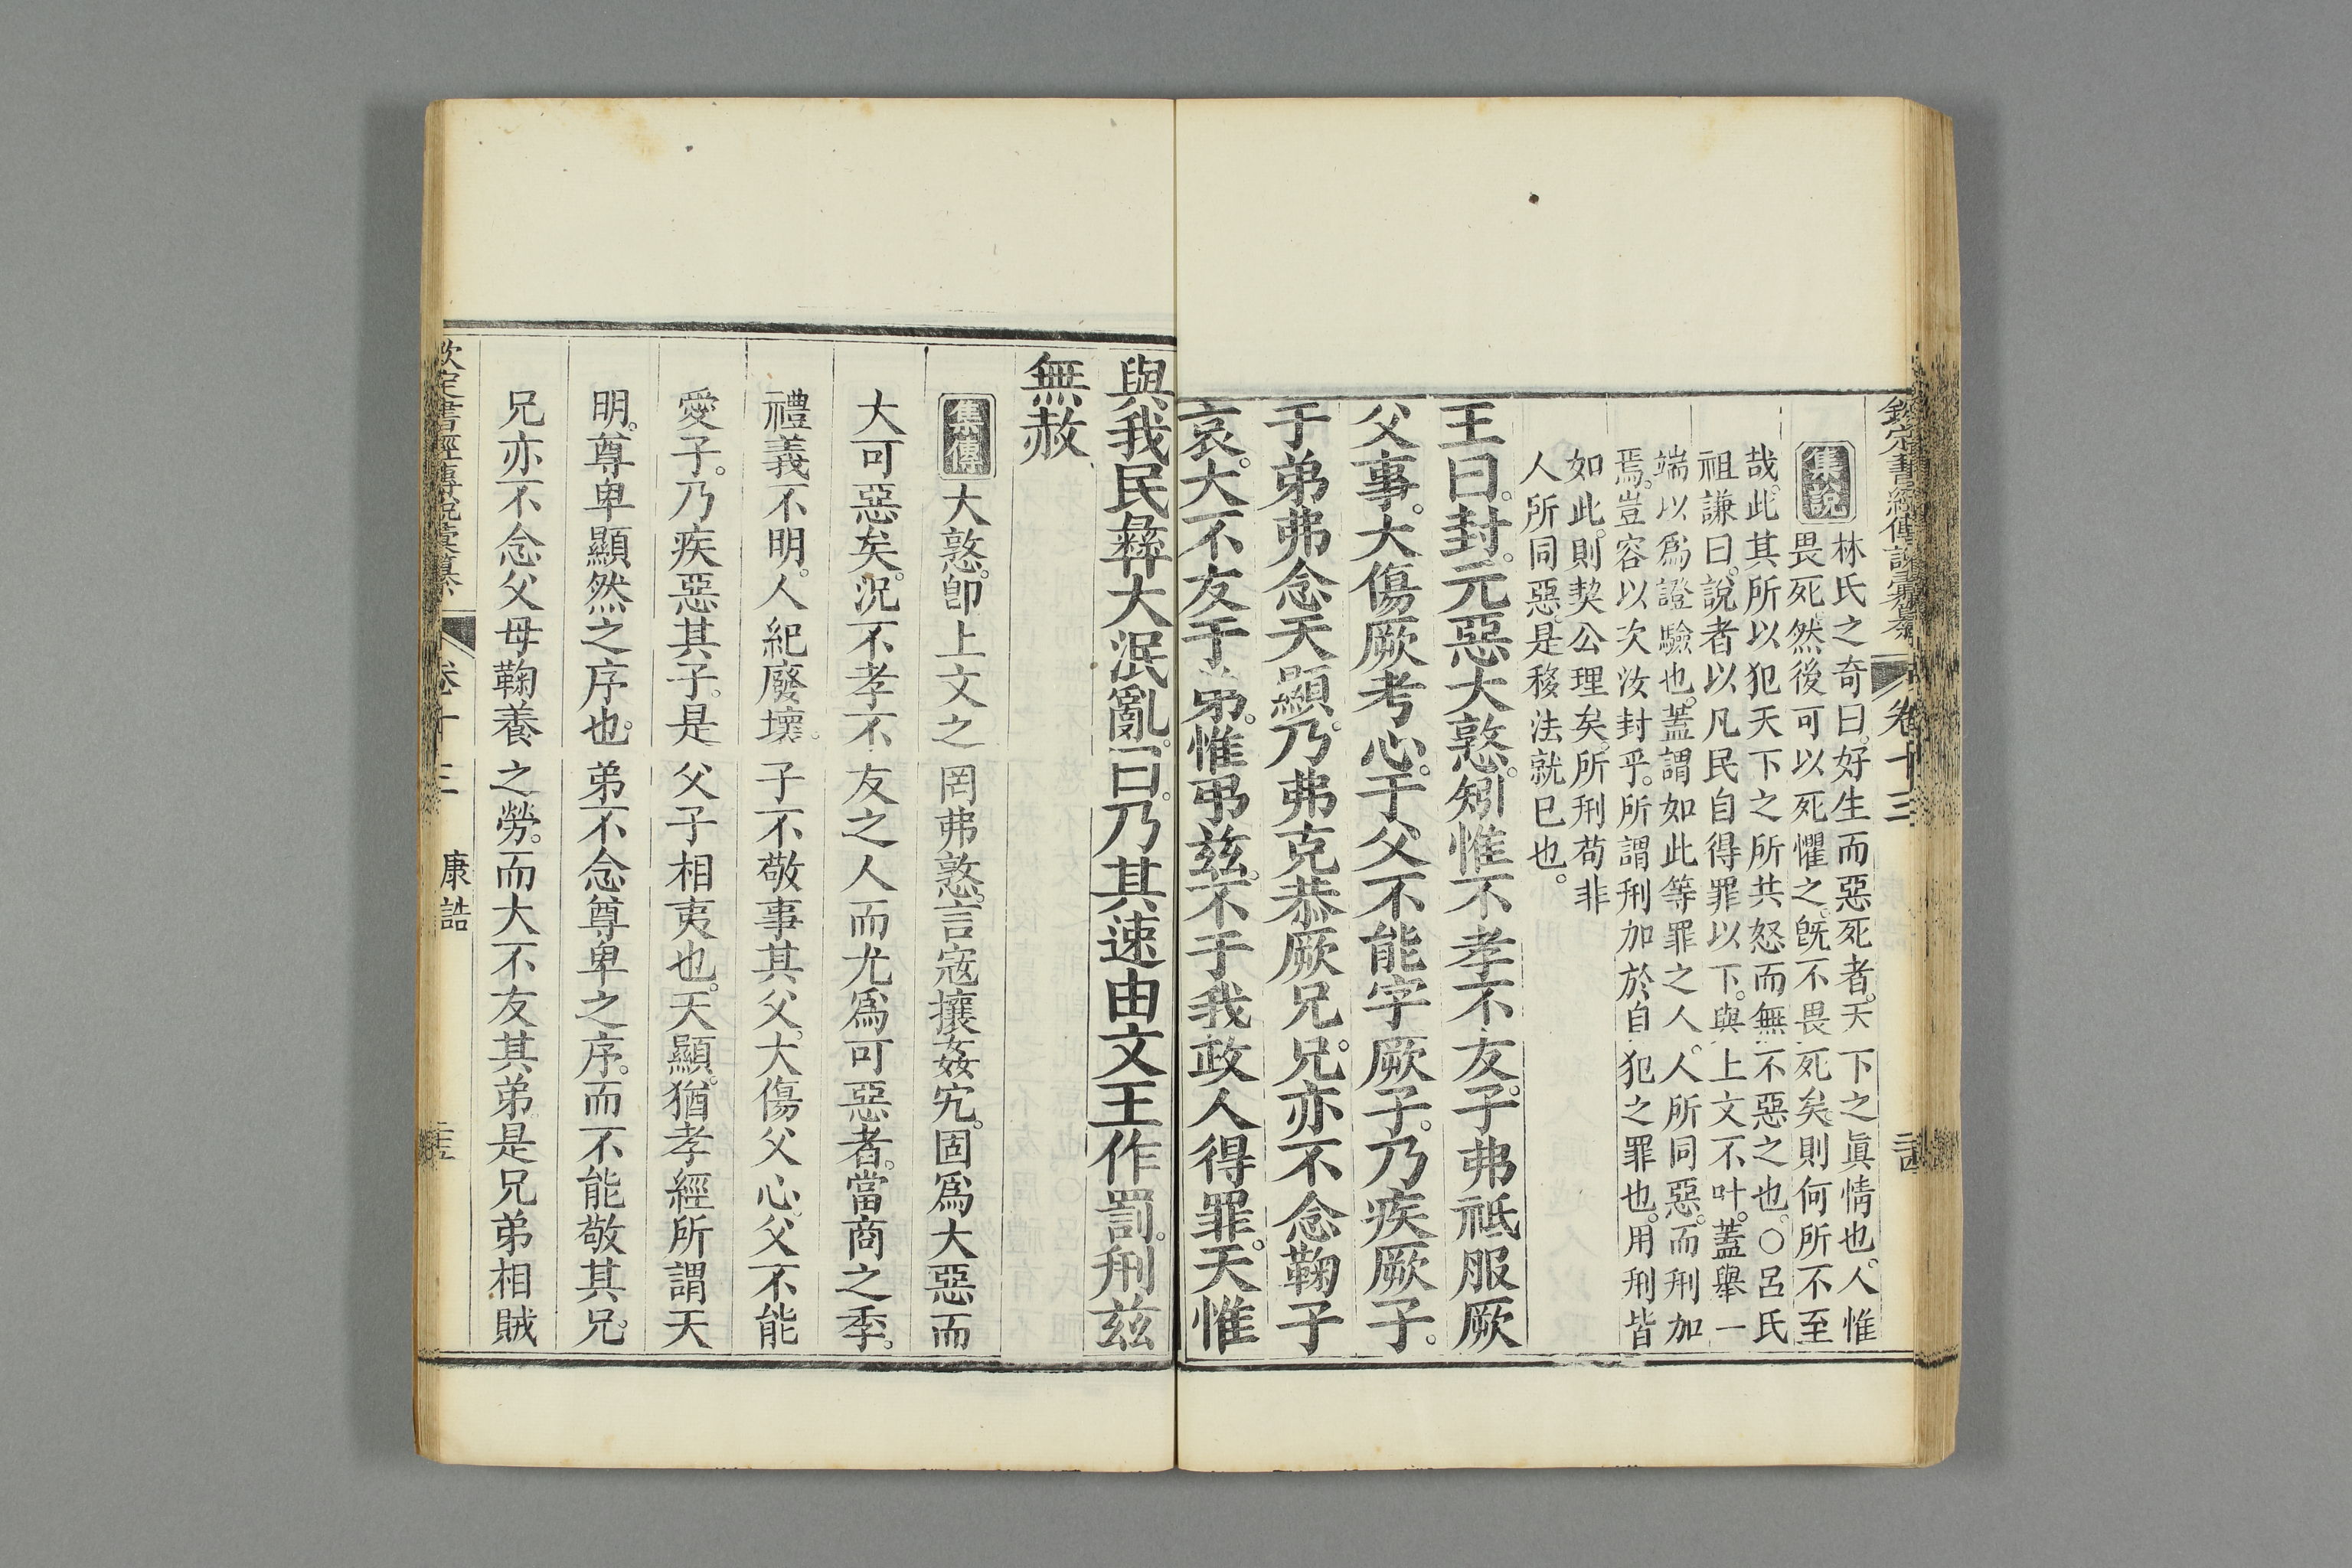 欽定書經傳說彙纂 卷十三 三四
集說
林氏之奇曰。好生而惡死者。天下之眞情也。人惟
畏死。然後可以死懼之。旣不畏死矣。則何所不至
哉。此其所以犯天下之所共怒而無不惡之也。○呂氏
祖謙曰。說者以凡民自得罪以下。與上文不叶。蓋舉一
端以爲證驗也。蓋謂如此等罪之人。人所同惡。而刑加
焉。豈容以次汝封乎。所謂刑加於自犯之罪也。用刑皆
如此。則契公理矣。所刑苟非
人所同惡。是移法就已也。
王曰。封。元惡大憝。矧惟不孝不友。子弗祗服厥
父事。大傷厥考心。于父不能字厥子。乃疾厥子。
于弟弗念天顯。乃弗克恭厥兄。兄亦不念鞠子
哀。大不友于弟。惟弔茲。不于我政人得罪。天惟
與我民彝大泯亂。曰。乃其速由文王作罰。刑茲
無赦
集傳
大憝。卽上文之罔弗憝。言寇攘姦宄。固爲大惡而
大可惡矣。況不孝不友之人而尤爲可惡者。當商之季。
禮義不明。人紀廢壞。子不敬事其父。大傷父心。父不能
愛子。乃疾惡其子。是父子相夷也。天顯。猶孝經所謂天
明。尊卑顯然之序也。弟不念尊卑之序。而不能敬其兄。
兄亦不念父母鞠養之勞。而大不友其弟。是兄弟相賊
欽定書經傳說彙纂 卷十三 康誥 三五